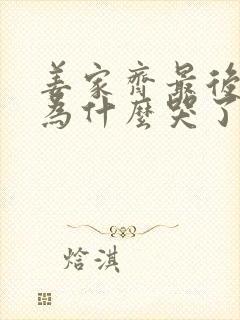 姜家齊最後
為什麼哭了
焓淇